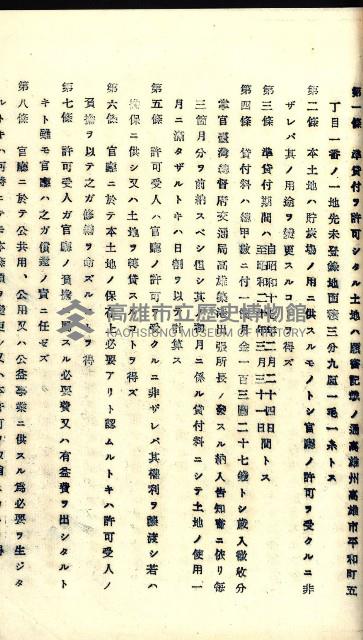 第一條 準貸付ヲ許可シタル土地ハ願書記載ノ通高雄州高雄市平和町五
丁目一番ノ一地先未登錄地面積三分九厘一毛一糸トス
第二條 本土地ハ貯炭場ノ用ニ供スルモノトシ官廳ノ許可ヲ受クルニ非
ザレバ其ノ用途ヲ變更スルコトヲ得ズ
第三條 準貸付期間ハ自昭和十年二月二十四日至昭和二十年三月三十一日間トス
第四條 貸付料ハ總甲數ニ付一月金一百三圓二十七錢トシ歲入徵收分
掌官臺灣總督府交通局高雄築港出張所長ノ發スル納入告知書ニ依リ每
三箇月分ヲ前納スベシ但シ其ノ每月ニ係ル貸付料ニシテ土地ノ使用一
月ニ滿タザルトキハ日割ヲ以テ計算ス
第五條 許可受人ハ官廳ノ許可ヲ受クルニ非ザレバ其權利ヲ讓渡シ若ハ
擔保ニ供シ又ハ土地ヲ轉貸スルコトヲ得ズ
第六條 官廳ニ於テ本土地ノ保存上必要アリト認ムルトキハ許可受人ノ
負擔ヲ以テ之ガ修繕ヲ命ズルコトヲ得
第七條 許可受人ガ官廳ノ負擔ニ屬スル必要費又ハ有益費ヲ出シタルト
キト雖モ官廳ハ之ガ償還ノ責ニ任ゼズ
第八條 官廳ニ於テ公共用、公用又ハ公益事業ニ供スル爲必要ヲ生ジタ
高雄市立歷史博物館
KAOHSIUNG MUSEUM OF HISTORY